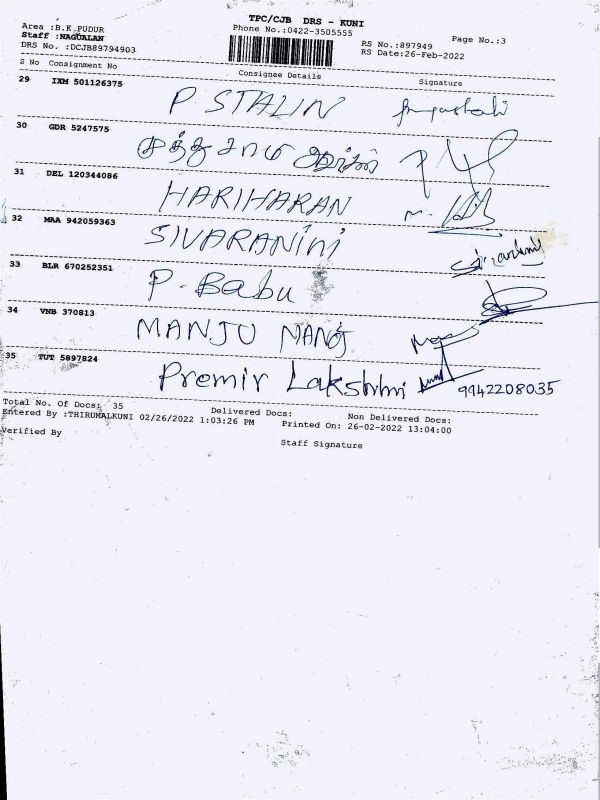 TPC/CJB DRS - KUNI
Area :B.K.PUDUR
Phone No.:0422-3505555
Page No.:3
Staff :NAGUALAN
RS No.:897949
DRS No. :DCJB89794903
RS Date:26-Feb-2022
S No Consignment No Consignee Details Signature
29 IXM 501126375
P STALIN
30 GDR 5247575
முத்து சாமி
31 DEL 120344086
HARIHARAN
32 MAA 942059363
SIVARANiNi
33 BLR 670252351
P. Babu
34 VNB 370813
MANJU
35 TUT 5897824
Premir Lakshmi 9942208035
Total No. Of Docs: 35 Delivered Docs: Non Delivered Docs:
Entered By :THIRUMALKUNI 02/26/2022 1:03:26 PM Printed On: 26-02-2022 13:04:00
Verified By
Staff Signature